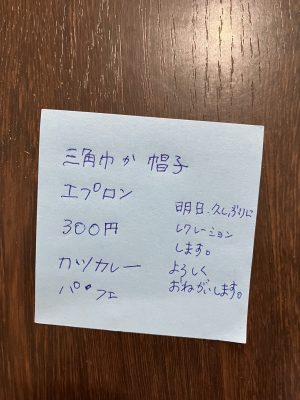 三角巾か帽子
エプロン
300円
カツカレー
パフェ
明日.久しぶりに
レクレーション
します。
よろしく
おねがいします。